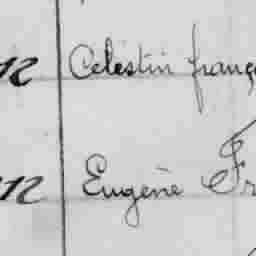 Celestin franç
Eugène Fr